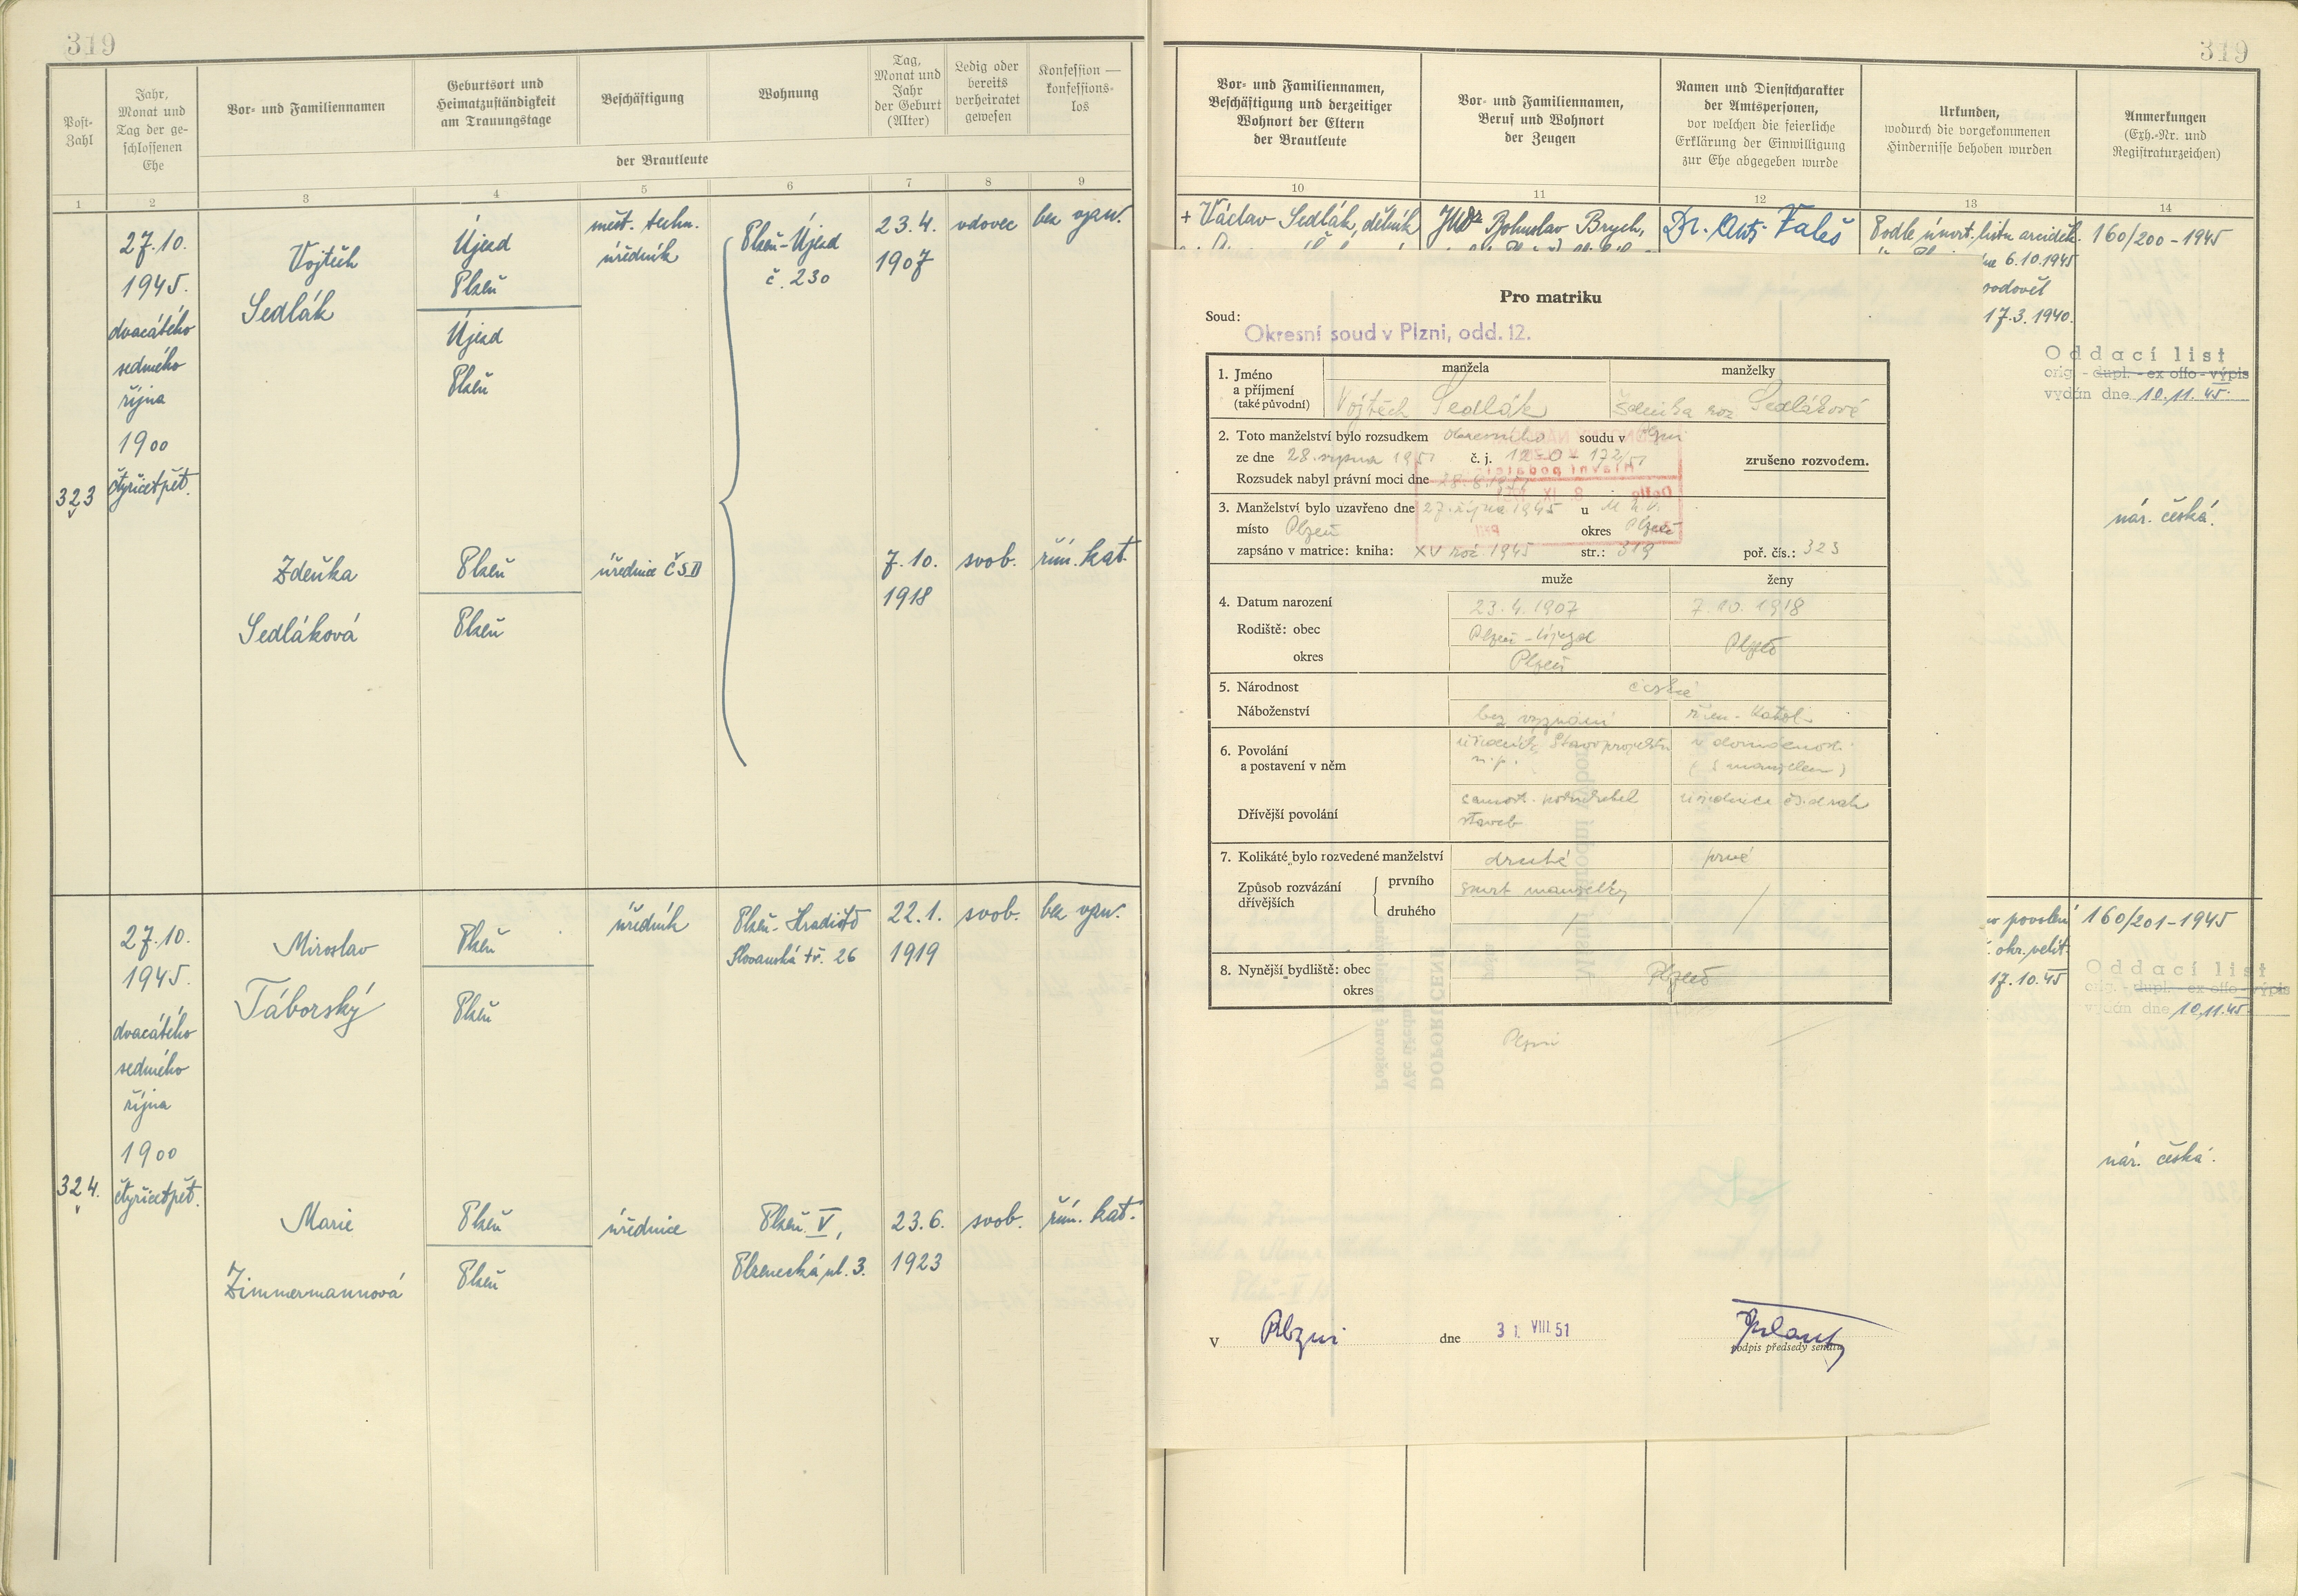 319
319
Post-
Zahl
Jahr,
Monat und
Tag der ge-
schlossenen
Ehe
Vor- und Familiennamen
Geburtsort und
Heimatzuständigkeit
am Trauungstage
Beschäftigung
Wohnung
Tag,
Monat und
Jahr
der Geburt
(Alter)
Ledig oder
bereits
verheiratet
gewesen
Konfession —
konfessions-
los
der Brautleute
1 2 3 4 5 6 7 8 9
323
27.10.
1945.
dvacátého
sedmého
října
1900
čtyřicetpět.
Vojtěch
Sedlák
Újezd
Plzeň
Újezd
Plzeň
měst. techn.
úředník
Plzeň-Újezd
č. 230
23.4.
1907
vdovec
bez vyzn.
Zdeňka
Sedláková
Plzeň
Plzeň
úřednice ČSD
7.10.
1918
svob.
řím. kat.
324.
27.10.
1945.
dvacátého
sedmého
října
1900
čtyřicetpět.
Miroslav
Táborský
Plzeň
Plzeň
úředník
Plzeň-Hradiště
Slovanská tř. 26
22.1.
1919
svob.
bez vyzn.
Marie
Zimmermannová
Plzeň
Plzeň
úřednice
Plzeň V,
Plzenecká ul. 3.
23.6.
1923
svob.
řím. kat.
Vor- und Familiennamen,
Beschäftigung und derzeitiger
Wohnort der Eltern
der Brautleute
Vor- und Familiennamen,
Beruf und Wohnort
der Zeugen
Namen und Dienstcharakter
der Amtspersonen,
vor welchen die feierliche
Erklärung der Einwilligung
zur Ehe abgegeben wurde
Urkunden,
wodurch die vorgekommenen
Hindernisse behoben wurden
Anmerkungen
(Exh.-Nr. und
Registraturzeichen)
10 11 12 13 14
+ Václav Sedlák, dělník
JUDr Bohuslav Brych,
Dr. Ant. Valeš
Podle úmrt. listu arciděk.
6.10.1945
17.3.1940.
160/200-1945
Oddací list
orig. - dupl. - ex offo - výpis
vydán dne 10.11.45.
nár. česká.
Pro matriku
Soud:
Okresní soud v Plzni, odd. 12.
manžela manželky
1. Jméno
a příjmení
(také původní)
Vojtěch Sedlák
Zdeňka roz. Sedláková
2. Toto manželství bylo rozsudkem okresního soudu v Plzni
ze dne 28. srpna 1951 č. j. 12-0-172/51 zrušeno rozvodem.
Rozsudek nabyl právní moci dne 28.8.1951
3. Manželství bylo uzavřeno dne 27. října 1945 u
místo Plzeň okres Plzeň
zapsáno v matrice: kniha: XV roč 1945 str.: 319 poř. čís.: 323
muže ženy
4. Datum narození 23.4.1907 7.10.1918
Rodiště: obec Plzeň-Újezd Plzeň
okres Plzeň
5. Národnost česká
Náboženství bez vyznání řím.-katol.
6. Povolání
a postavení v něm
úředník Stavoprojektu
n. p.
v domácnosti
(s manželem)
Dřívější povolání
samost. podnikatel
staveb
úřednice čs. drah
7. Kolikáté bylo rozvedené manželství druhé prvé
Způsob rozvázání
dřívějších
prvního smrt manželky
druhého
8. Nynější bydliště: obec Plzeň
okres
Plzeň
V Plzni dne 31. VIII. 51
podpis předsedy senátu
povolení
okr. velit.
17.10.45
160/201-1945
Oddací list
orig. - dupl. - ex offo - výpis
vydán dne 10.11.45.
nár. česká.